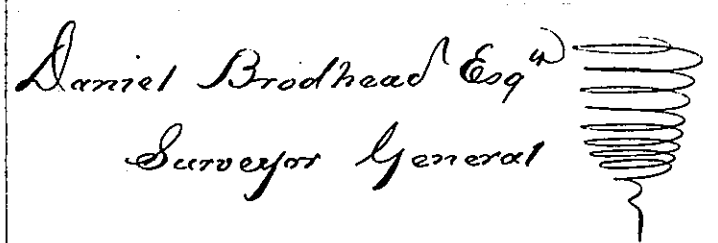 Daniel Brodhead Esqr
Surveyor General